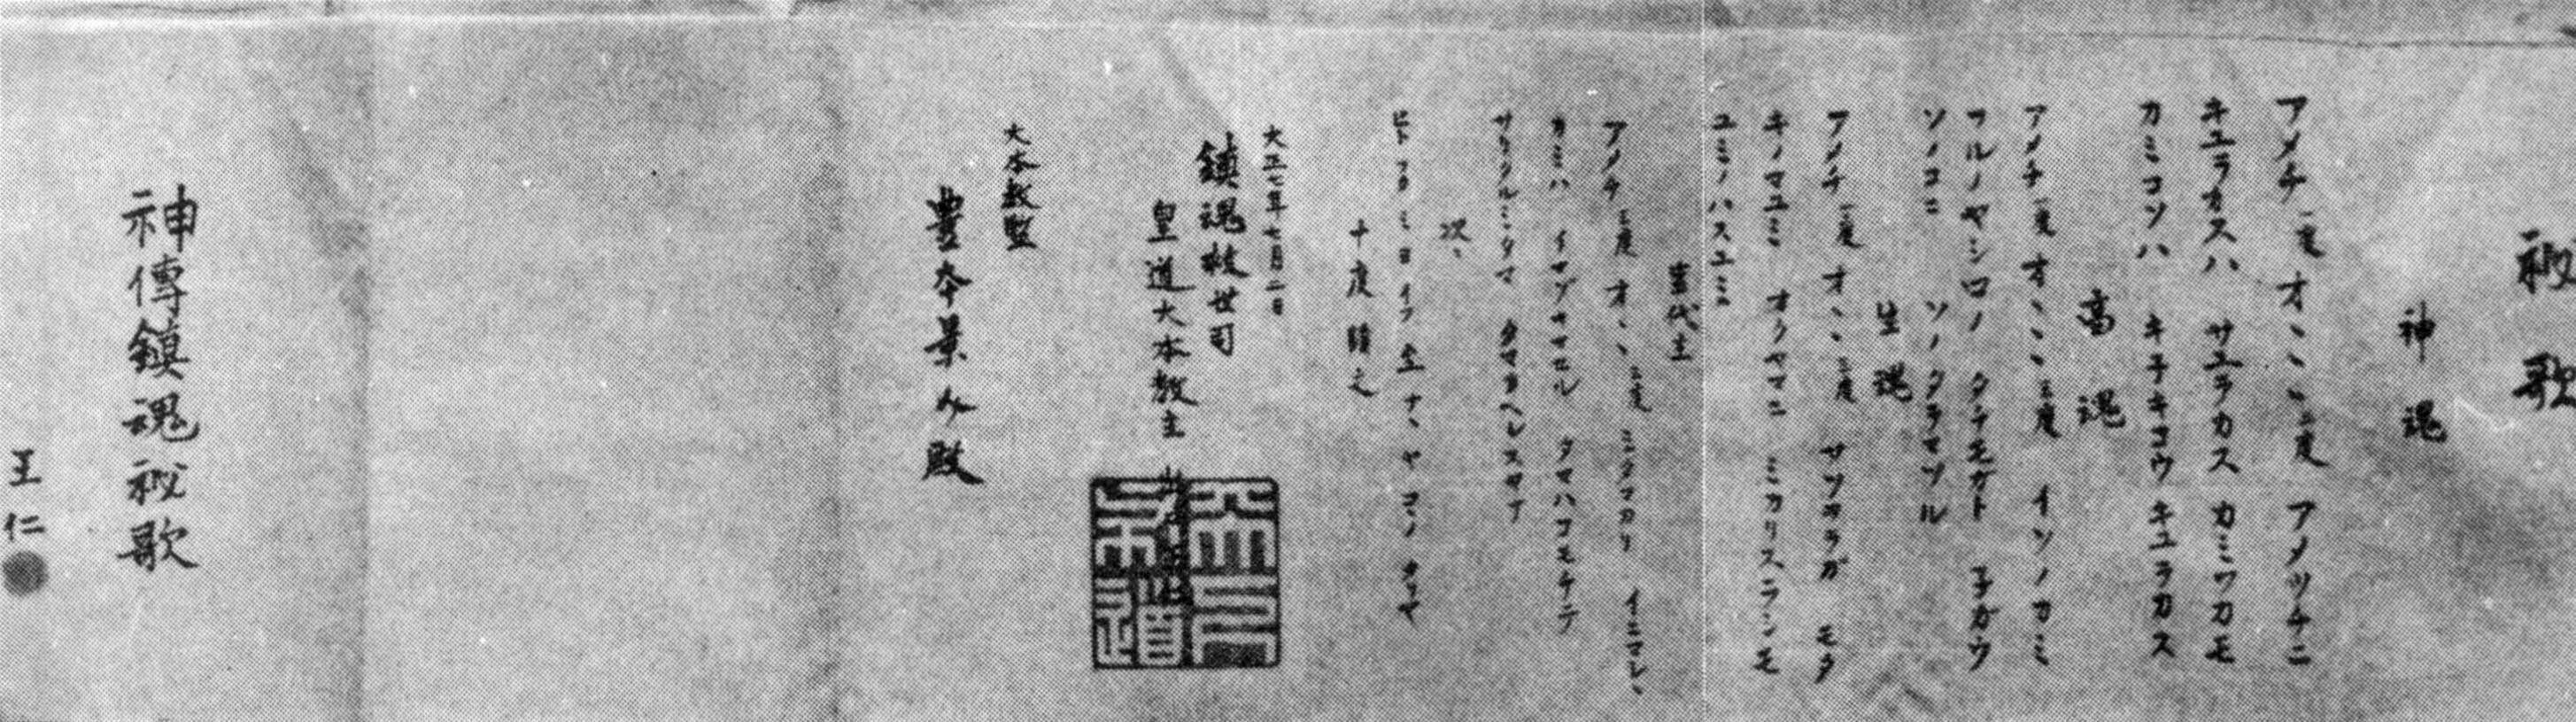 秘歌
神魂
アメチ一度オヽヽヽ三度 アメツチニ
キユラカスハ サユラカス カミワカモ
カミコソハ キネキコウ キユラカス
高魂
アメチ一度オヽヽヽ三度 イソノカミ
フルノヤシロノ タチモガト 子ガウ
ソノコニ ソノタテマツル
生魂
アメチ一度オヽヽ三度 サツヲラガ モタ
キノマユミ オクヤマニ ミカリスラシモ
ユミノハスユミユ
事代主
アメチ三度オヽヽ三度 ミタマカリ イニマシヽ
カミハ イマゾキマセル タマハコモチテ
サリクルミタマ タマカヘシスヤナ
次ヽ
ヒトフタミヨイツムナヽヤコヽノタリヤ
十度 読之
大正七年七月二日
鎮魂救世司
皇道大本教主
大本教監
豊本景介殿
神傳鎮魂秘歌
王仁